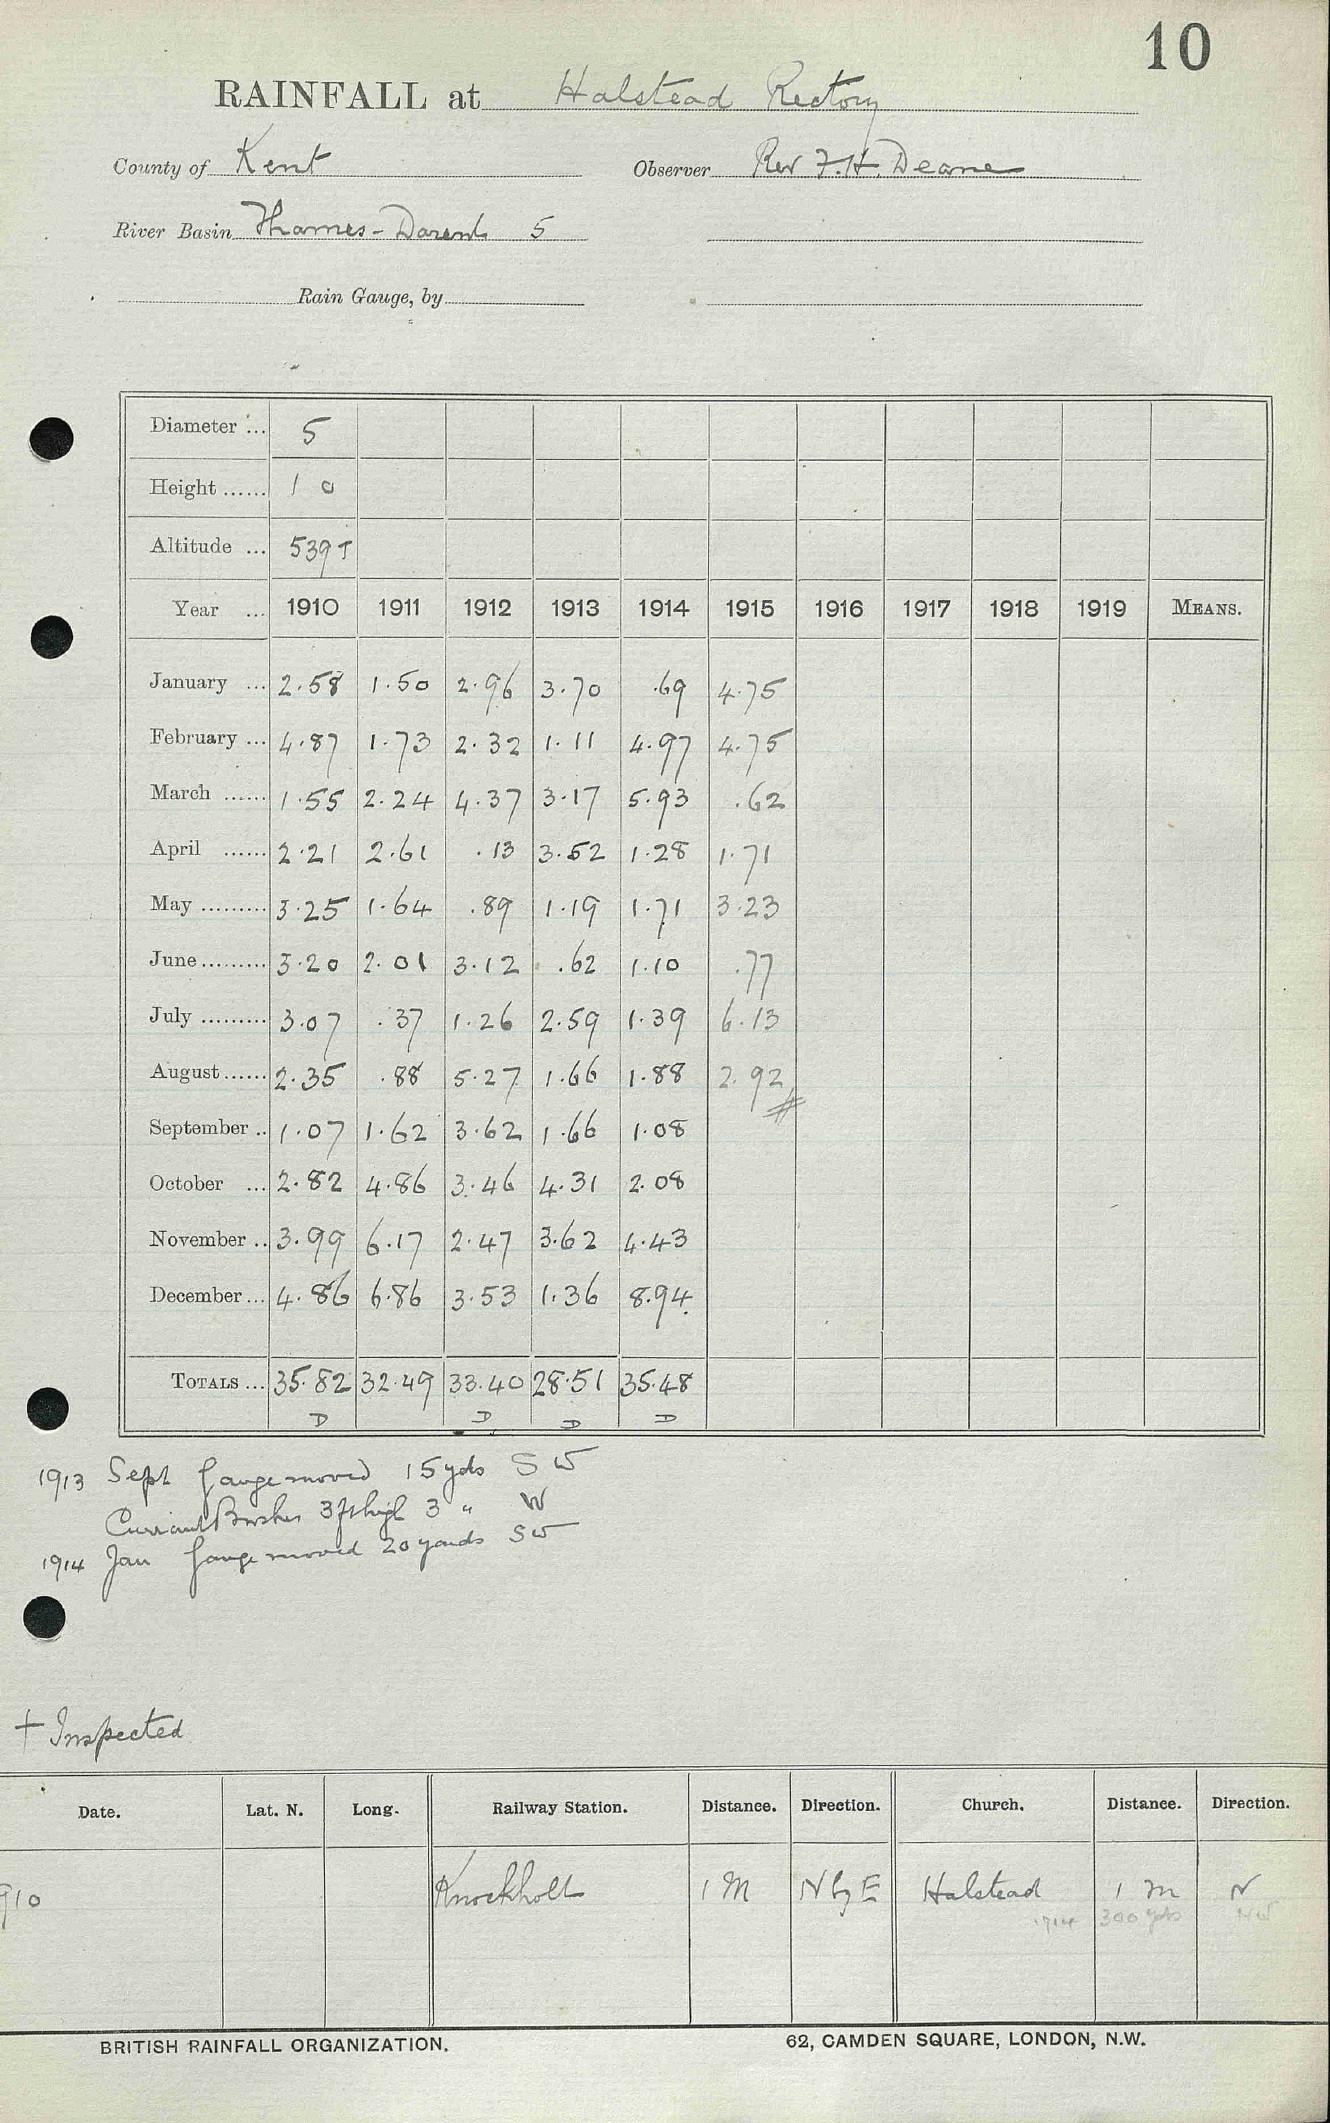 10
RAINFALL at Halstead Rectory
County of Kent Observer Rev F.H. Deane
River Basin Thames - Darent 5
Rain Gauge, by
Diameter ... 5
Height ...... 1 0
Altitude ... 539 †
Year ... 1910 1911 1912 1913 1914 1915 1916 1917 1918 1919 MEANS.
January ... 2.58 1.50 2.96 3.70 .69 4.75
February ... 4.87 1.73 2.32 1.11 4.97 4.75
March ...... 1.55 2.24 4.37 3.17 5.93 .62
April ...... 2.21 2.61 .13 3.52 1.28 1.71
May ......... 3.25 1.64 .89 1.19 1.71 3.23
June ......... 3.20 2.01 3.12 .62 1.10 .77
July ......... 3.07 .37 1.26 2.59 1.39 6.13
August ...... 2.35 .88 5.27 1.66 1.88 2.92
September .. 1.07 1.62 3.62 1.66 1.08
October ... 2.82 4.86 3.46 4.31 2.08
November .. 3.99 6.17 2.47 3.62 4.43
December ... 4.86 6.86 3.53 1.36 8.94
TOTALS ... 35.82 32.49 33.40 28.51 35.48
D D D D
1913 Sept Gauge moved 15 yds SW
Currant Bushes 3 ft high 3 " W
1914 Jan Gauge moved 20 yards SW
† Inspected
Date. Lat. N. Long. Railway Station. Distance. Direction. Church. Distance. Direction.
910 Knockholt 1 M N by E Halstead 1 m N
1914 300 yds NW
BRITISH RAINFALL ORGANIZATION. 62, CAMDEN SQUARE, LONDON, N.W.